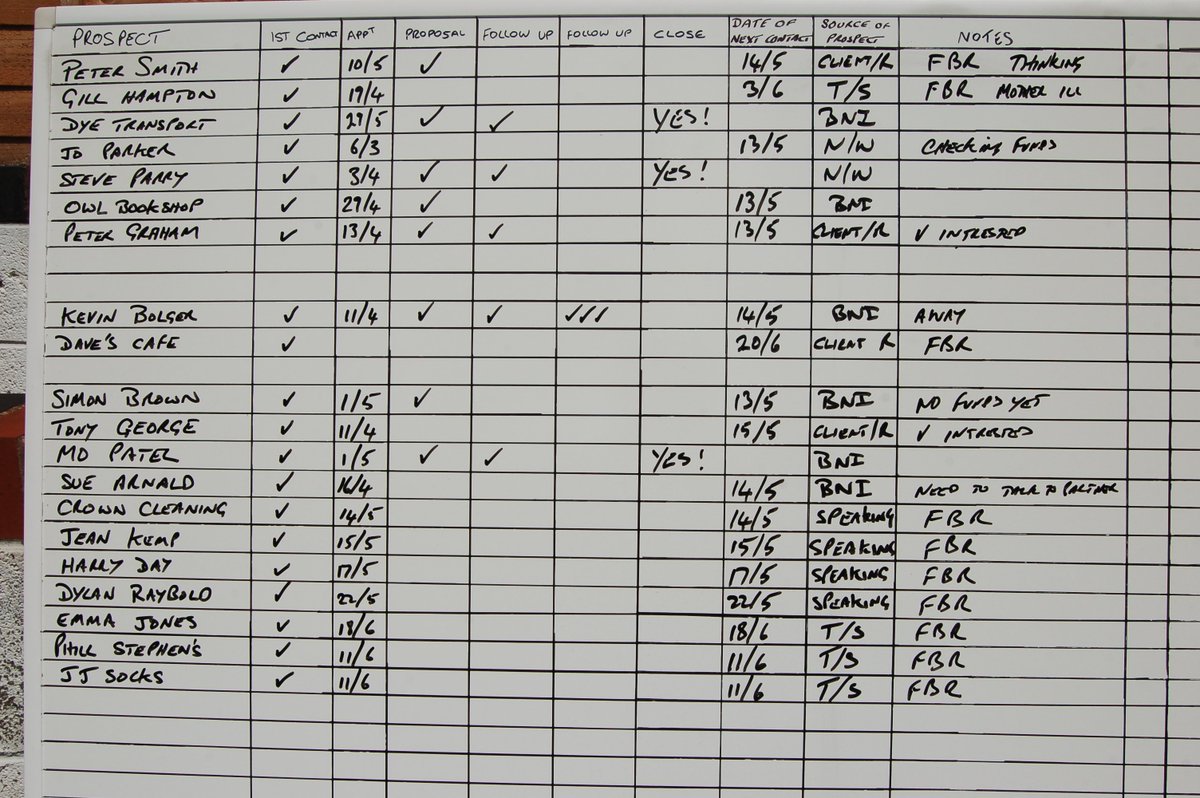 PROSPECT 1ST CONTACT APPT PROPOSAL FOLLOW UP FOLLOW UP CLOSE DATE OF NEXT CONTACT SOURCE OF PROSPECT NOTES
PETER SMITH ✓ 10/5 ✓ 14/5 CLIENT/R FBR THINKING
GILL HAMPTON ✓ 19/4 3/6 T/S FBR MOTHER ILL
DYE TRANSPORT ✓ 29/5 ✓ ✓ YES! BNI
JO PARKER ✓ 6/3 13/5 N/W CHECKING FUNDS
STEVE PARRY ✓ 3/4 ✓ ✓ YES! N/W
OWL BOOKSHOP ✓ 29/4 ✓ 13/5 BNI
PETER GRAHAM ✓ 13/4 ✓ ✓ 13/5 CLIENT/R V INTRESTED
KEVIN BOLGER ✓ 11/4 ✓ ✓ ✓✓✓ 14/5 BNI AWAY
DAVE'S CAFE ✓ 20/6 CLIENT R FBR
SIMON BROWN ✓ 1/5 ✓ 13/5 BNI NO FUNDS YET
TONY GEORGE ✓ 11/4 15/5 CLIENT/R V INTRESTED
MO PATEL ✓ 1/5 ✓ ✓ YES! BNI
SUE ARNALD ✓ 16/4 14/5 BNI NEED TO TALK TO PARTNER
CROWN CLEANING ✓ 14/5 14/5 SPEAKING FBR
JEAN KEMP ✓ 15/5 15/5 SPEAKING FBR
HARRY DAY ✓ 17/5 17/5 SPEAKING FBR
DYLAN RAYBOLD ✓ 22/5 22/5 SPEAKING FBR
EMMA JONES ✓ 18/6 18/6 T/S FBR
PHILL STEPHEN'S ✓ 11/6 11/6 T/S FBR
JJ SOCKS ✓ 11/6 11/6 T/S FBR